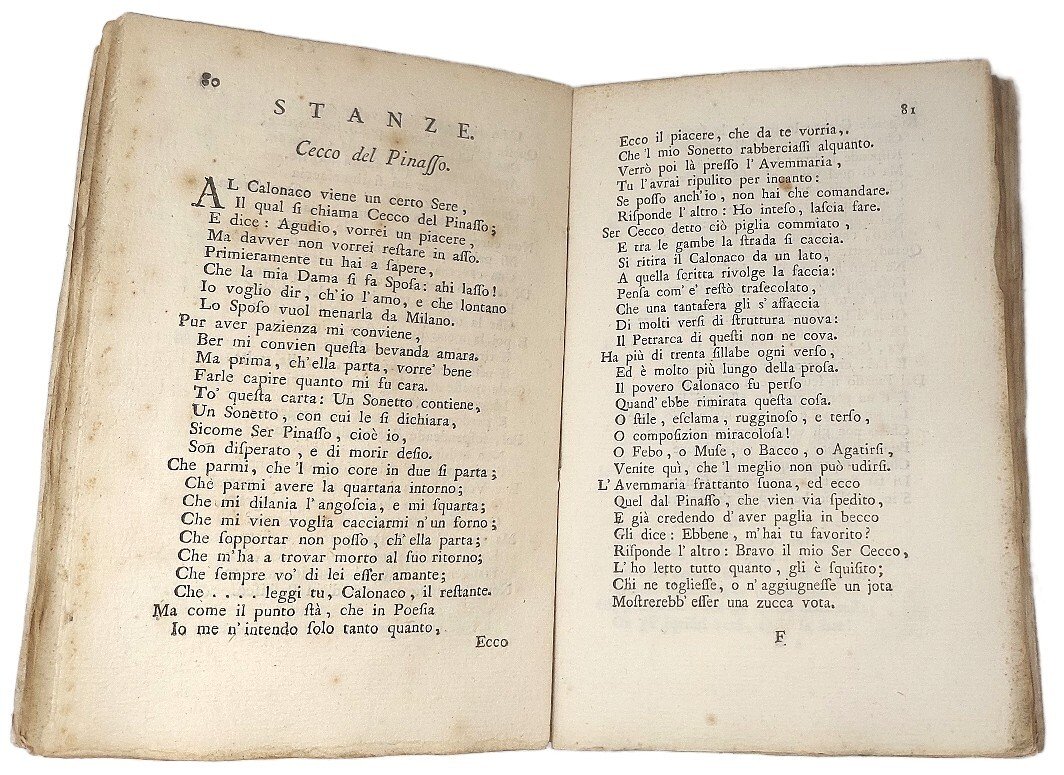 80
STANZE.
Cecco del Pinaſſo.
AL Calonaco viene un certo Sere,
Il qual ſi chiama Cecco del Pinaſſo;
E dice: Agudio, vorrei un piacere,
Ma davver non vorrei reſtare in aſſo.
Primieramente tu hai a ſapere,
Che la mia Dama ſi fa Spoſa: ahi laſſo!
Io voglio dir, ch'io l'amo, e che lontano
Lo Spoſo vuol menarla da Milano.
Pur aver pazienza mi conviene,
Ber mi convien queſta bevanda amara.
Ma prima, ch'ella parta, vorre' bene
Farle capire quanto mi fu cara.
To' queſta carta: Un Sonetto contiene,
Un Sonetto, con cui le ſi dichiara,
Sicome Ser Pinaſſo, cioè io,
Son diſperato, e di morir deſio.
Che parmi, che 'l mio core in due ſi parta;
Che parmi avere la quartana intorno;
Che mi dilania l'angoſcia, e mi ſquarta;
Che mi vien voglia cacciarmi n'un forno;
Che ſopportar non poſſo, ch'ella parta;
Che m'ha a trovar morto al ſuo ritorno;
Che ſempre vo' di lei eſſer amante;
Che .... leggi tu, Calonaco, il reſtante.
Ma come il punto ſtà, che in Poeſia
Io me n'intendo ſolo tanto quanto,
Ecco
81
Ecco il piacere, che da te vorria,.
Che 'l mio Sonetto rabberciaſſi alquanto.
Verrò poi là preſſo l'Avemmaria,
Tu l'avrai ripulito per incanto:
Se poſſo anch'io, non hai che comandare.
Riſponde l'altro: Ho inteſo, laſcia fare.
Ser Cecco detto ciò piglia commiato,
E tra le gambe la ſtrada ſi caccia.
Si ritira il Calonaco da un lato,
A quella ſcritta rivolge la faccia:
Penſa com' e' reſtò traſecolato,
Che una tantafera gli s'affaccia
Di molti verſi di ſtruttura nuova:
Il Petrarca di queſti non ne cova.
Ha più di trenta ſillabe ogni verſo,
Ed è molto più lungo della proſa.
Il povero Calonaco fu perſo
Quand' ebbe rimirata queſta coſa.
O ſtile, eſclama, rugginoſo, e terſo,
O compoſizion miracoloſa!
O Febo, o Muſe, o Bacco, o Agatirſi,
Venite quì, che 'l meglio non può udirſi.
L'Avemmaria frattanto ſuona, ed ecco
Quel dal Pinaſſo, che vien via ſpedito,
E già credendo d'aver paglia in becco
Gli dice: Ebbene, m'hai tu favorito?
Riſponde l'altro: Bravo il mio Ser Cecco,
L'ho letto tutto quanto, gli è ſquiſito;
Chi ne toglieſſe, o n'aggiugneſſe un jota
Moſtrerebb' eſſer una zucca vota.
F